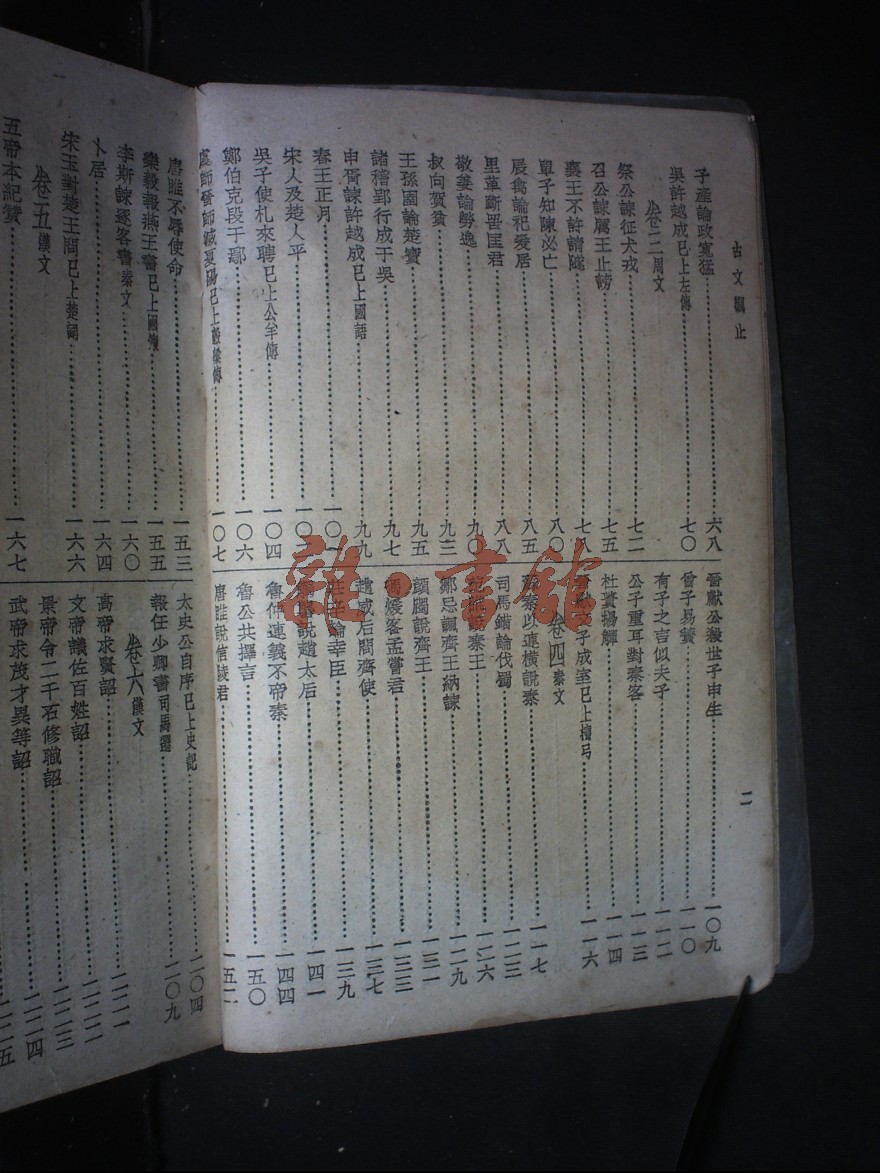 古文觀止
子產論政寬猛 六八
吳許越成已上左傳 七〇
卷三周文
祭公諫征犬戎 七二
召公諫厲王止謗 七五
襄王不許請隧 七八
單子知陳必亡 八〇
展禽論祀爰居 八五
里革斷罟匡君 八八
敬姜論勞逸 九〇
叔向賀貧 九三
王孫圉論楚寶 九五
諸稽郢行成于吳 九七
申胥諫許越成已上國語 九九
春王正月 一〇一
宋人及楚人平 一〇二
吳子使札來聘已上公羊傳 一〇四
鄭伯克段于鄢 一〇六
虞師晉師滅夏陽已上穀梁傳 一〇七
晉獻公殺世子申生 一〇九
曾子易簀 一一〇
有子之言似夫子 一一二
公子重耳對秦客 一一三
杜蕢揚觶 一一四
晉獻文子成室已上檀弓 一一六
卷四秦文
蘇秦以連橫說秦 一一七
司馬錯論伐蜀 一二三
說秦王 一二六
鄒忌諷齊王納諫 一二九
顏斶說齊王 一三一
馮煖客孟嘗君 一三三
趙威后問齊使 一三七
莊辛論幸臣 一三九
說趙太后 一四一
魯仲連義不帝秦 一四四
魯公共擇言 一五〇
唐雎說信陵君 一五二
二
唐雎不辱使命 一五三
樂毅報燕王書已上國策 一五五
李斯諫逐客書秦文 一六〇
卜居 一六四
宋玉對楚王問已上楚詞 一六六
卷五漢文
五帝本紀贊 一六七
太史公自序已上史記 二〇四
報任少卿書司馬遷 二〇九
卷六漢文
高帝求賢詔
文帝議佐百姓詔
景帝令二千石修職詔 二二三
武帝求茂才異等詔
雜·書館